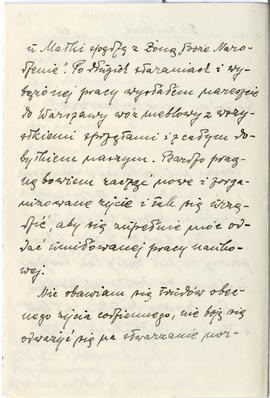 u Matki spędzę z Żoną „Boże Naro-
dzenie". Po długich staraniach i wy-
tężonej pracy wysłałem nareszcie
do Warszawy wóz meblowy z wszy-
stkiemi sprzętami i z całym do-
bytkiem naszym. Bardzo prag-
nę bowiem zacząć nowe i zorga-
nizowane życie i tak się urzą-
dzić, aby się zupełnie móc od-
dać umiłowanej pracy nauko-
wej.
Nie obawiam się trudów obec-
nego życia codziennego, nie boję się
odważyć się na stwarzanie